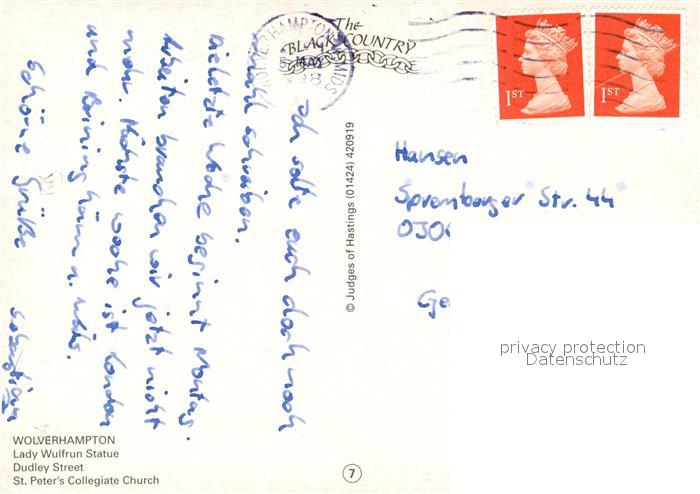 The
BLACK COUNTRY
WOLVERHAMPTON
1ST
1ST
Ich sollte euch doch noch
mal schreiben.
Die letzte Woche beginnt Montag.
Arbeiten brauchen wir jetzt nicht
mehr. Nächste Woche ist London
und
Schöne Grüße
Sebastian
© Judges of Hastings (01424) 420919
Hansen
Spremberger Str. 44
030
Ge
privacy protection
Datenschutz
WOLVERHAMPTON
Lady Wulfrun Statue
Dudley Street
St. Peter's Collegiate Church
7